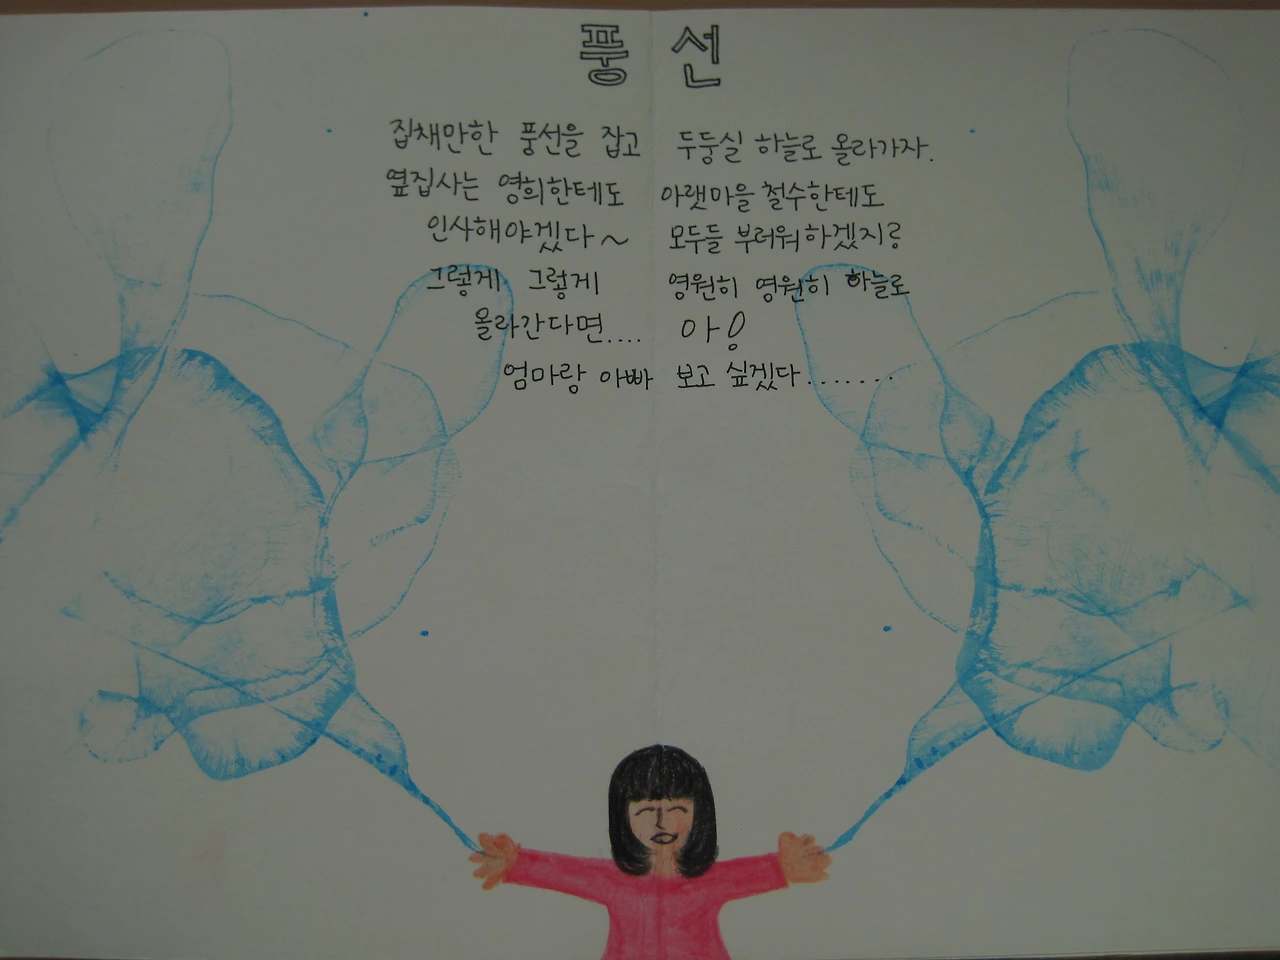 풍선
집채만한 풍선을 잡고 두둥실 하늘로 올라가자.
옆집사는 영희한테도 아랫마을 철수한테도
인사해야겠다~ 모두들 부러워하겠지?
그렇게 그렇게 영원히 영원히 하늘로
올라간다면.... 아!
엄마랑 아빠 보고 싶겠다.......